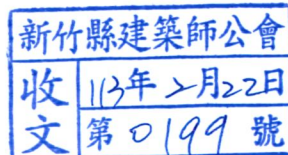 新竹縣建築師公會
收文
113年2月22日
第0199號